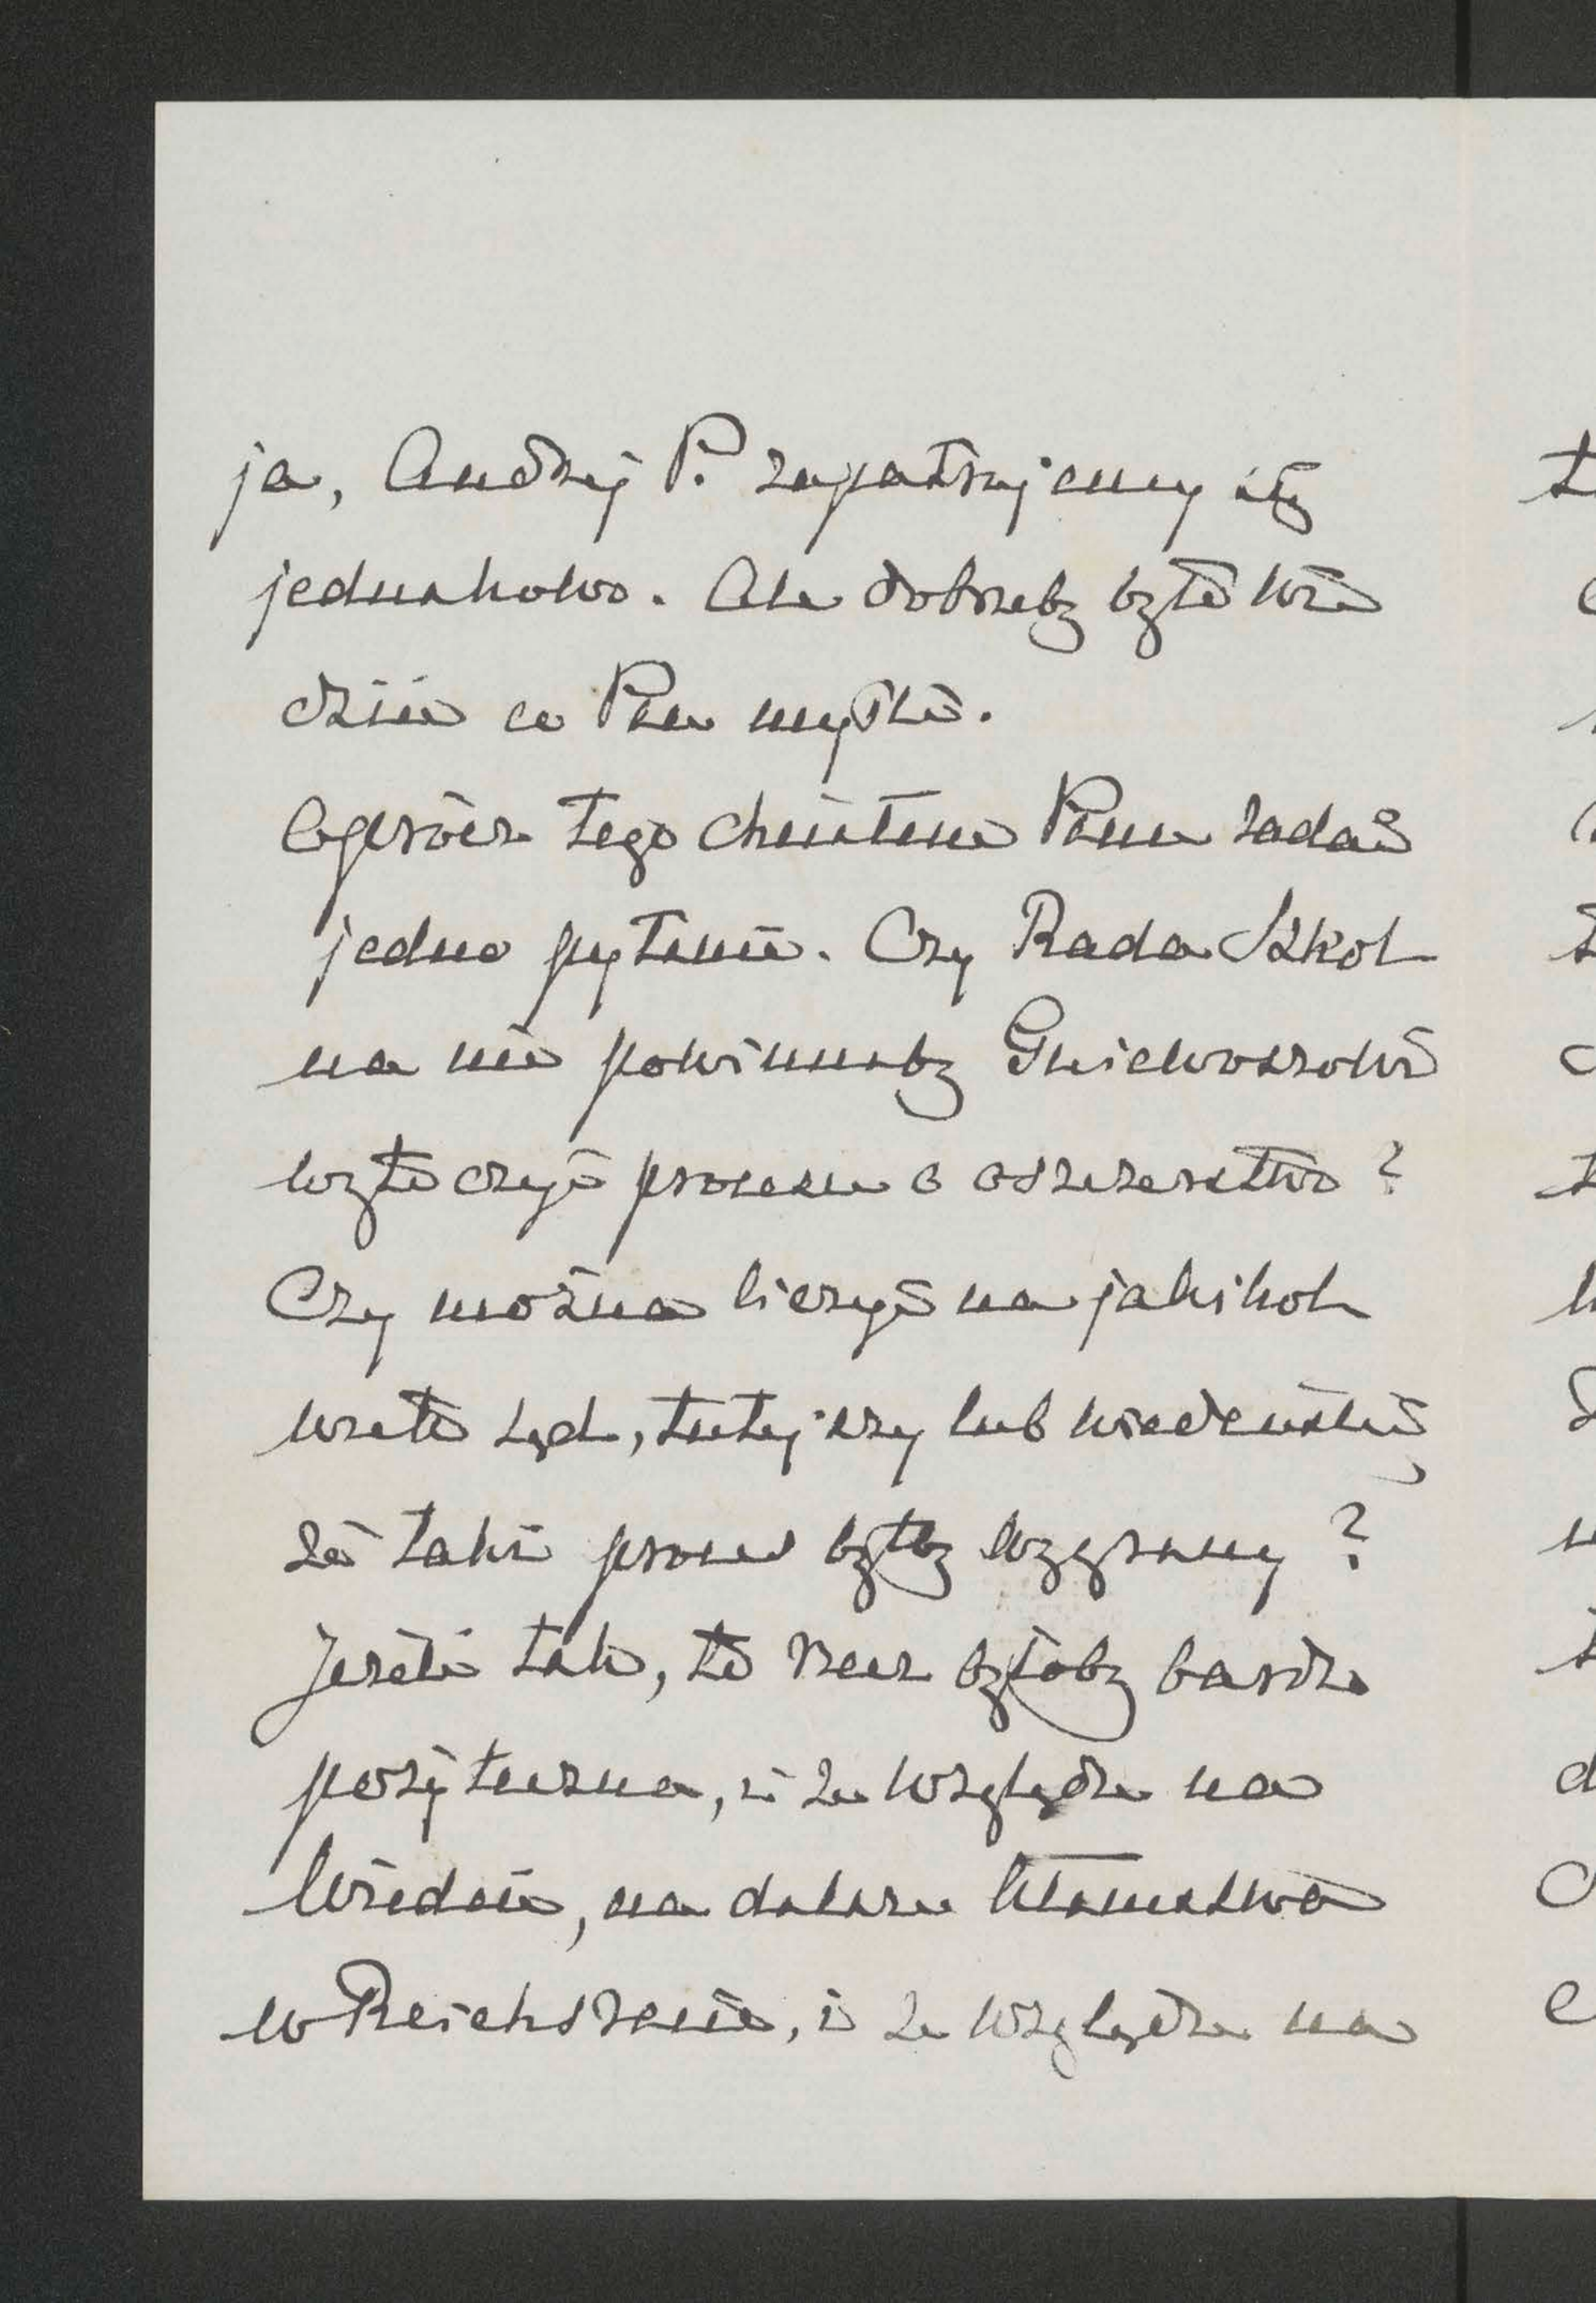 ja, Andrzej P. zapatrujemy się
jednakowo. Ale dobrzeby było wie
dzieć co Pan myśli.
Oprócz tego chciałem Panu zadać
jedno pytanie. Czy Rada Szkol
na nie powinnaby Gniewoszowi
wytoczyć procesu o oszczerstwo?
Czy można liczyć na jakikol
wiek sąd, tutejszy lub wiedeński,
że taki proces byłby wygrany?
Jeżeli tak, to rzecz byłaby bardzo
pożyteczna, i ze względu na
Wiedeń, na dalsze kłamstwa
w Reichsracie, i ze względu na